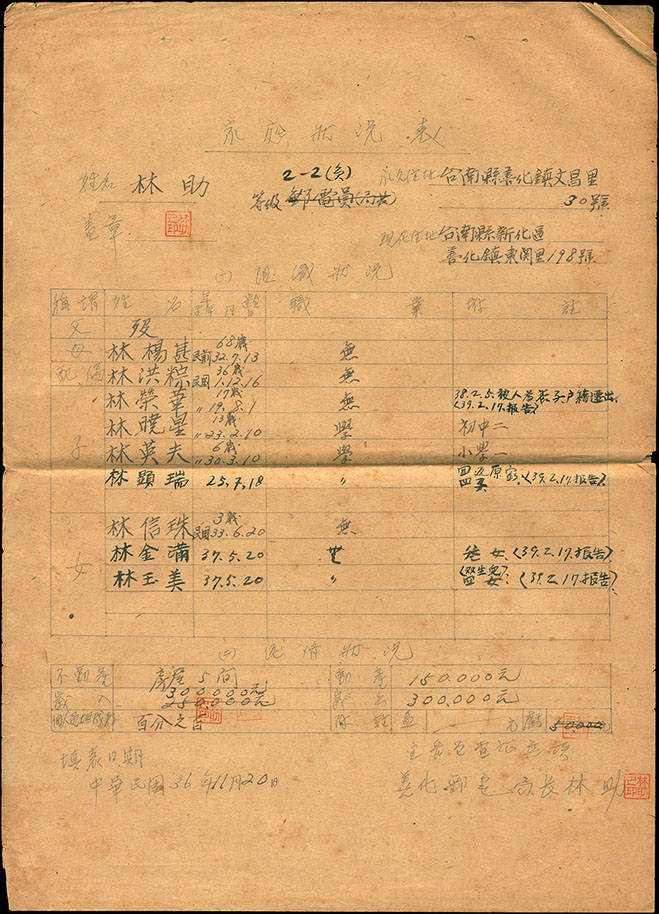 家庭狀況表
姓名 林助
2-2(負)
等級 郵電員(高共)
永久住址 台南縣善化鎮文昌里
30號
蓋章 林助之印
現在住址 台南縣新化區
善化鎮東関里198號
(一) 組織狀況
稱謂 姓名 年齡 職業 附註
父 歿
母 林楊甚 68歲 民前32.7.13 無
配偶 林洪粽 36歲 民国1.12.16 無
子 林榮華 17歲 〃19.8.1 無 38.2.5.被人為養子戶籍遷出.(39.2.17.報告)
林曉星 13歲 〃23.2.10 學 初中二
林英夫 6歲 〃30.3.10 學 小學一
林顕瑞 25.7.18 〃 (39.2.17.報告)
女 林信珠 3歲 民国33.6.20 無
林金滿 37.5.20 無 女.(39.2.17.報告)
林玉美 37.5.20 〃 (双生兒) 女.(39.2.17.報告)
(二) 經濟狀況
不動產 房屋5間 動產 150.000元
歲入 300000元 250.000元 歲出 300,000元
百分之百 元 50000
填表日期
中華民国36年11月20日
主管
善化郵電局長林助 林助之印